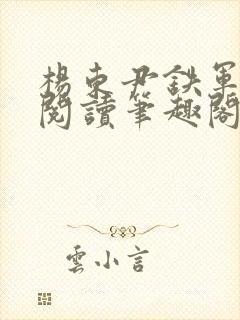 楊東君鉄軍
閱讀筆趣閣
雲小言